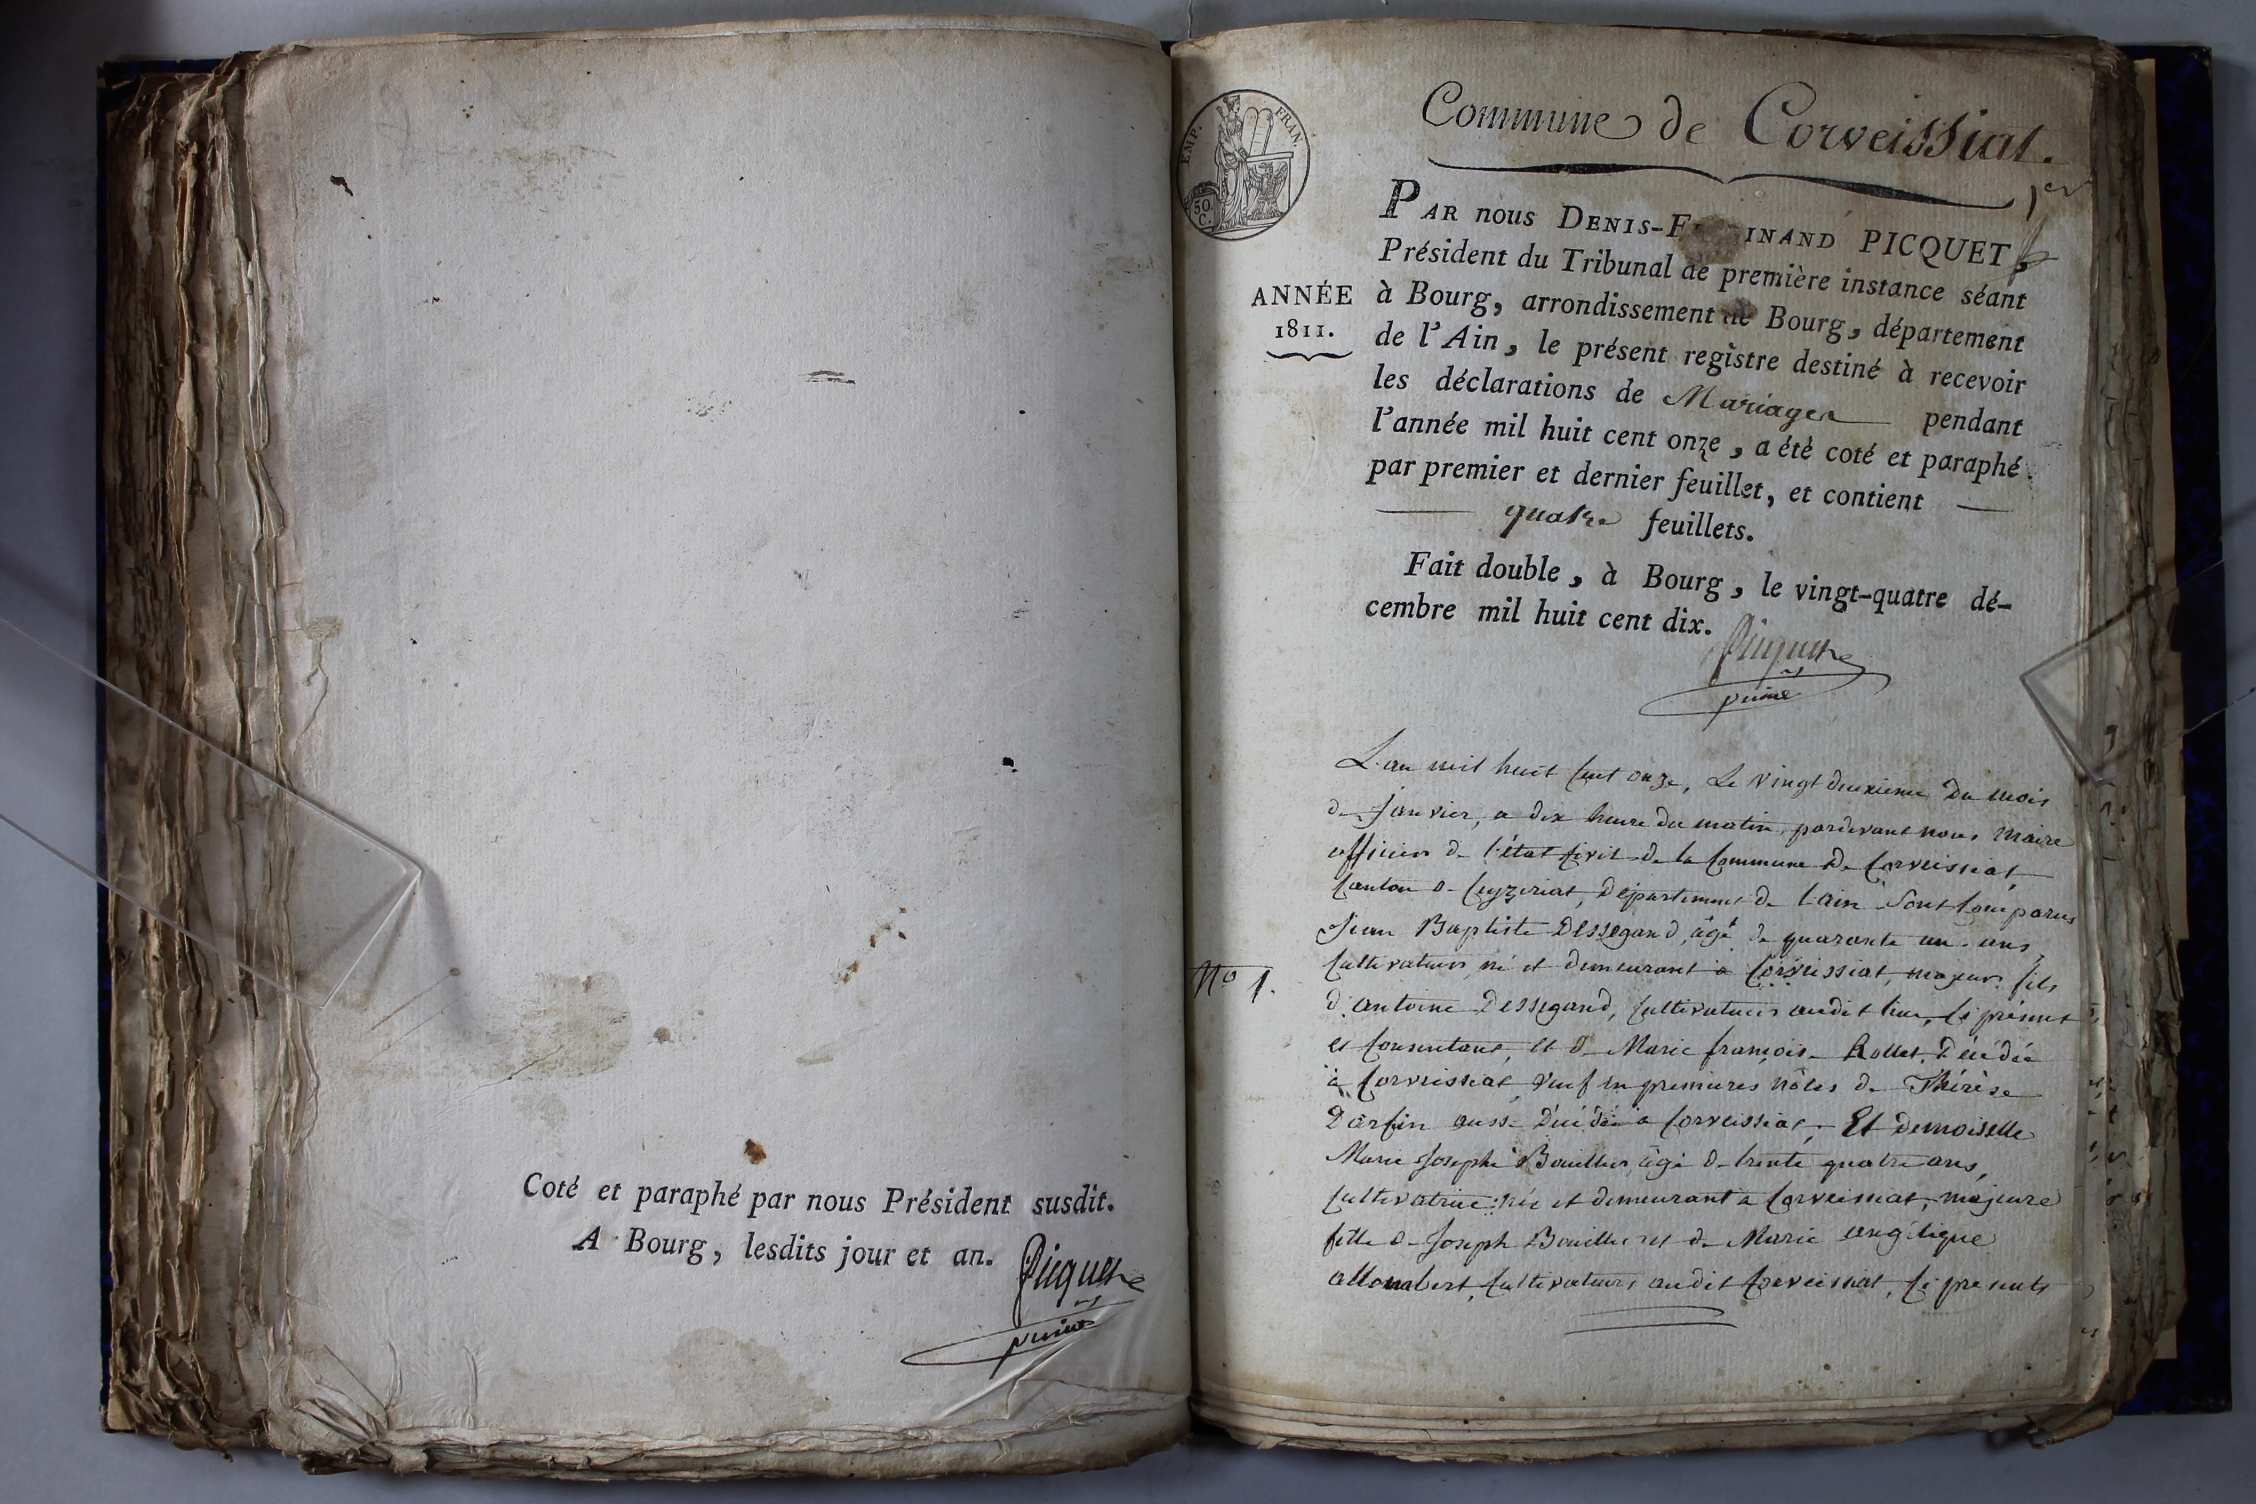 Coté et paraphé par nous Président susdit.
A Bourg, lesdits jour et an.
Picquet
Commune de Corveissiat.
1er
EMP. FRAN.
50.
C.
ANNÉE
1811.
PAR nous DENIS-F INAND PICQUET,
Président du Tribunal de première instance séant
à Bourg, arrondissement de Bourg, département
de l'Ain, le présent registre destiné à recevoir
les déclarations de Mariages pendant
l'année mil huit cent onze, a été coté et paraphé
par premier et dernier feuillet, et contient
quatre feuillets.
Fait double, à Bourg, le vingt-quatre dé-
cembre mil huit cent dix.
Picquet
No 1.
L'an mil huit cent onze, Le vingt deuxieme du mois
de Janvier, a dix heure du matin, pardevant nous Maire
officier de l'état Civil de la Commune de Corveissiat,
Canton de Ceyzeriat, Département de l'ain sont Comparus
Jean Baptiste Dessegand, âgé de quarante un ans,
Cultivateur, né et demeurant à Corveissiat, majeur fils
d'antoine Dessegand, Cultivateur audit lieu, Ci présent
et Consentant, et de Marie françoise Rollet, Décédée
à Corveissiat, veuf en premieres nôces de Thérèse
Darfin aussi Décédée à Corveissiat; Et Demoiselle
Marie Josephe Bouillet, âgé de trente quatre ans,
Cultivatrice née et demeurant à Corveissiat, majeure
fille de Joseph Bouillet et de Marie angélique
allombert, Cultivateurs audit Corveissiat, Ci presents